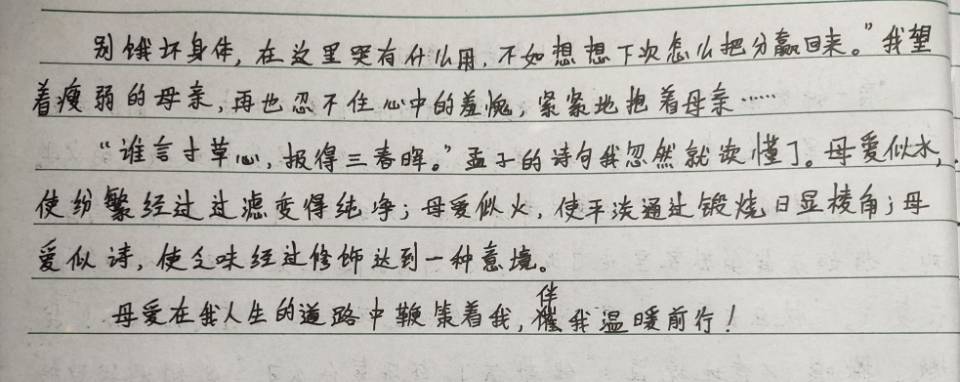 别饿坏身体，在这里哭有什么用，不如想想下次怎么把分赢回来。”我望
着瘦弱的母亲，再也忍不住心中的羞愧，紧紧地抱着母亲……
“谁言寸草心，报得三春晖。”孟子的诗句我忽然就读懂了。母爱似水，
使纷繁经过过滤变得纯净；母爱似火，使平淡通过锻烧日显棱角；母
爱似诗，使乏味经过修饰达到一种意境。
母爱在我人生的道路中鞭策着我，伴我温暖前行！